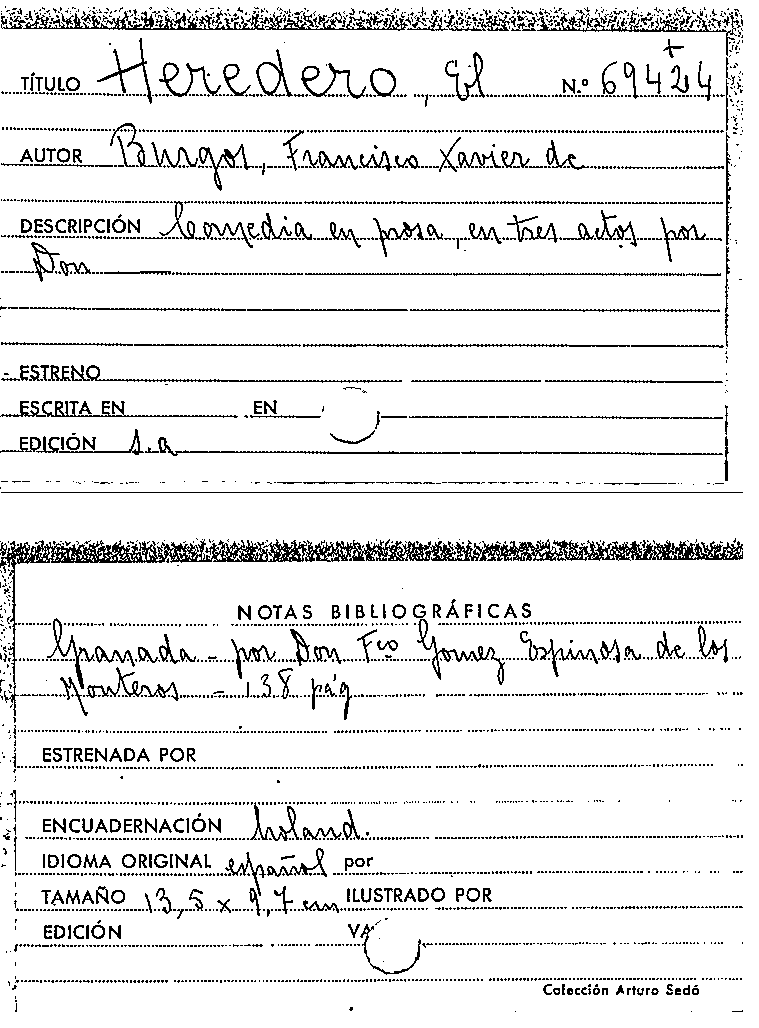 +
TÍTULO Heredero, El N.º 69424
AUTOR Burgos, Francisco Xavier de
DESCRIPCIÓN Comedia en prosa, en tres actos por
Don ——
ESTRENO
ESCRITA EN EN
EDICIÓN s.a
NOTAS BIBLIOGRÁFICAS
Granada - por Don Fco Gomez Espinosa de los
Monteros - 138 pág
ESTRENADA POR
ENCUADERNACIÓN holand.
IDIOMA ORIGINAL español por
TAMAÑO 13,5 x 9,7 cm ILUSTRADO POR
EDICIÓN VA
Colección Arturo Sedó